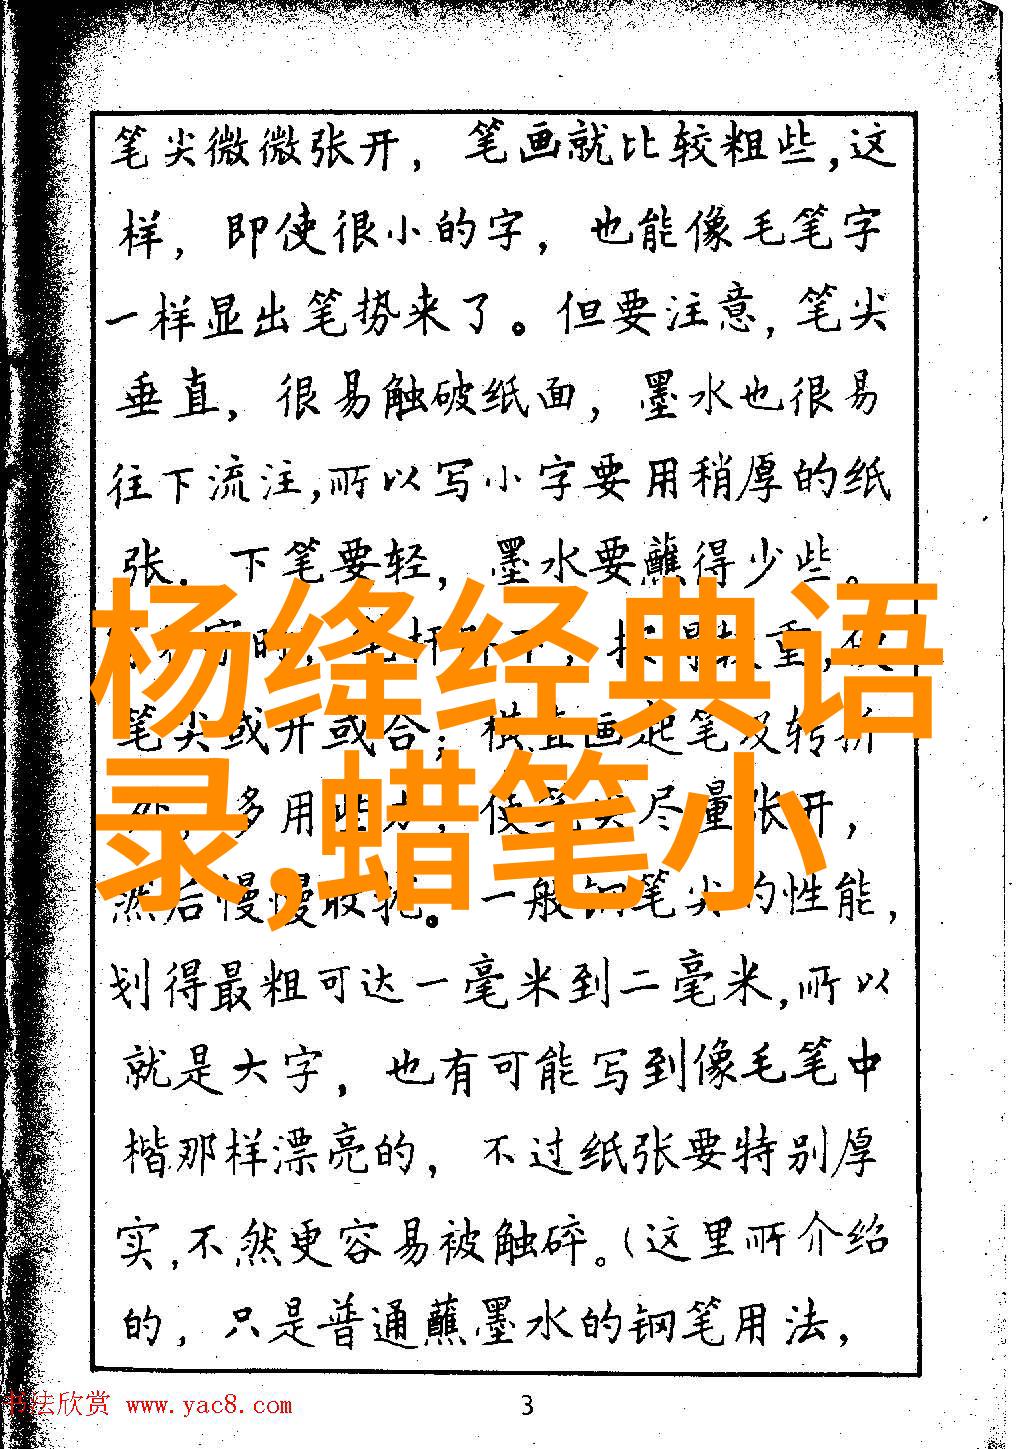 笔尖微微张开，笔画就比较粗些，这
样，即使很小的字，也能像毛笔字
一样显出笔势来了。但要注意，笔尖
垂直，很易触破纸面，墨水也很易
往下流注，所以写小字要用稍厚的纸
张．下笔要轻，墨水要蘸得少些。
杨绛经典语
笔尖或开或合；横直画起笔及转折
录,蜡笔小
多用些力，使笔尖尽量张开，
然后慢慢收拢。一般钢笔尖的性能，
划得最粗可达一毫米到二毫米，所以
就是大字，也有可能写到像毛笔中
楷那样漂亮的，不过纸张要特别厚
实，不然更容易被触碎。（这里所介绍
的，只是普通蘸墨水的钢笔用法，
书法欣赏 www.yac8.com
3